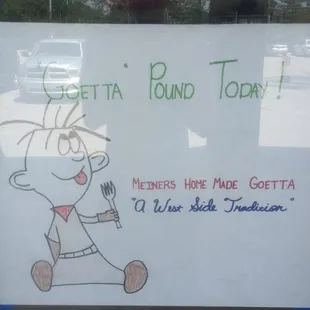 Goetta" Pound Today!
Meiners Home Made Goetta
"A West Side Tradicion"